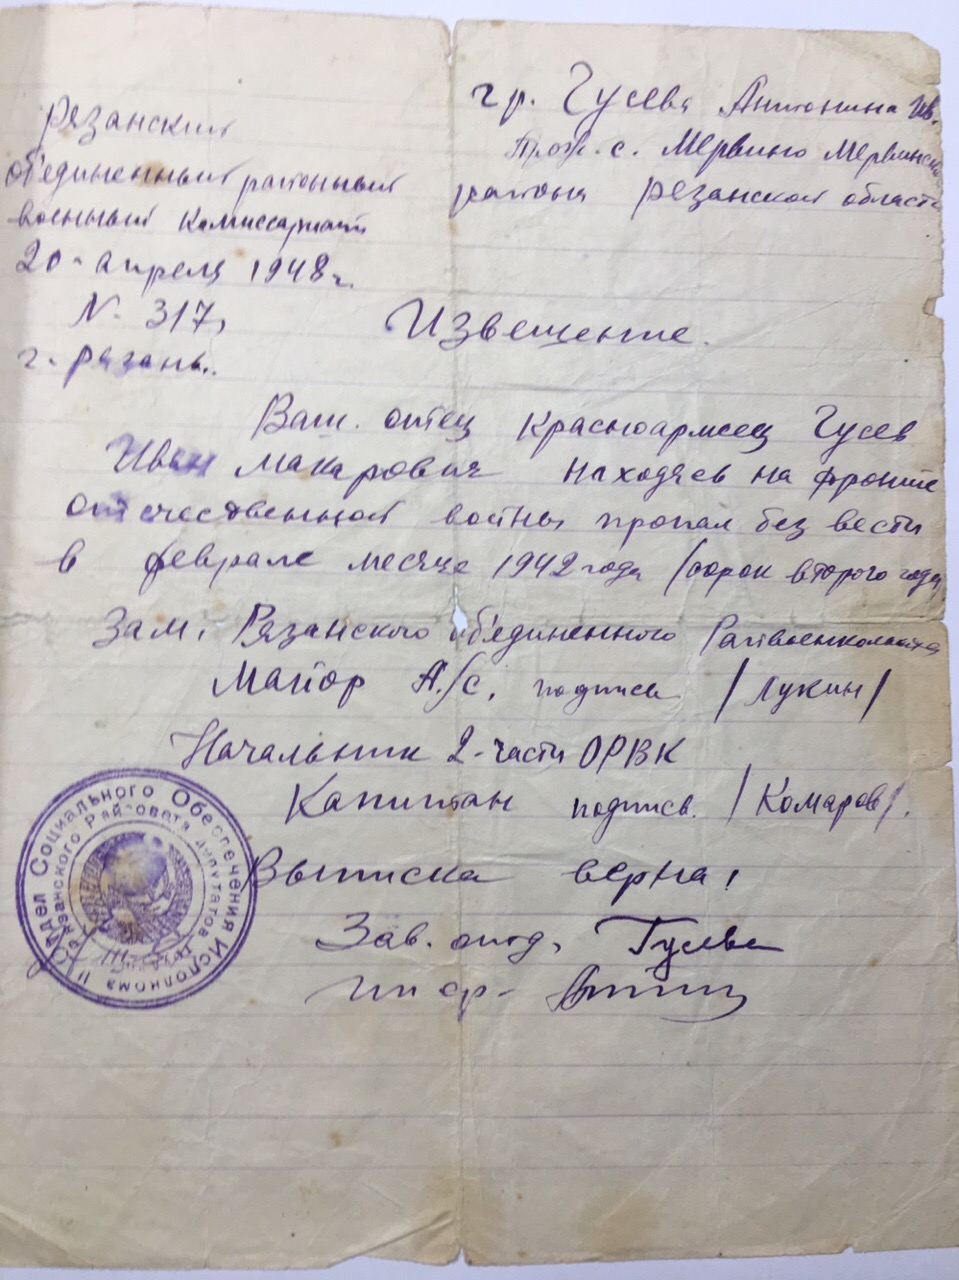 гр. Гусева Антонина Ив.
Прож. с. Мервино Мервинского
района Рязанской области
Рязанский
об'единенный районный
военный комиссариат
20 апреля 1948 г.
N. 317,
г. Рязань.
Извещение.
Ваш. отец красноармеец Гусев
Иван Макарович находясь на фронте
отечественной войны пропал без вести
в феврале месяце 1942 года /сорок второго года
Зам. Рязанского об'единенного Райвоенкомата
Майор А./с. подпись /Лукин/
Начальник 2-части ОРВК
Капитан подпись. /Комаров/.
Выписка верна:
Зав. отд.
Отдел Социального Обеспечения Исполкома
Рязанского Райсовета депутатов